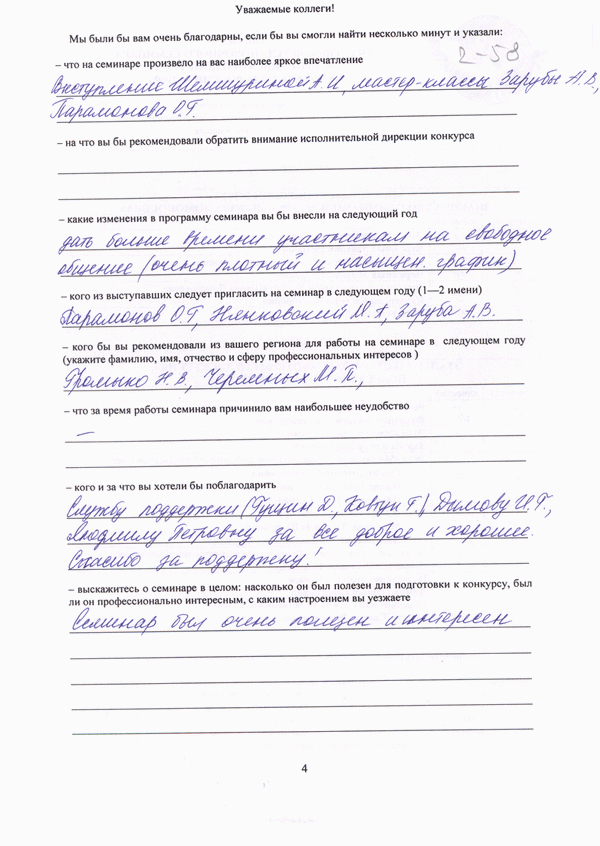 Уважаемые коллеги!
Мы были бы вам очень благодарны, если бы вы смогли найти несколько минут и указали:
2-58
– что на семинаре произвело на вас наиболее яркое впечатление
Выступление Шемшуриной А И, мастер-классы Зарубы А.В,
Парамонова О.Г.
– на что вы бы рекомендовали обратить внимание исполнительной дирекции конкурса
– какие изменения в программу семинара вы бы внесли на следующий год
дать больше времени участникам на свободное
общение (очень плотный и насыщен. график)
– кого из выступавших следует пригласить на семинар в следующем году (1—2 имени)
Парамонов О.Г, М.А, Заруба А.В.
– кого бы вы рекомендовали из вашего региона для работы на семинаре в следующем году
(укажите фамилию, имя, отчество и сферу профессиональных интересов )
Громыко Н.В., Черемных М.П.,
– что за время работы семинара причинило вам наибольшее неудобство
–
– кого и за что вы хотели бы поблагодарить
Службу поддержки (Гущин Д, Ковтун Г.), Дымову И.Г.,
Людмилу Петровну за все доброе и хорошее.
Спасибо за поддержку!
– выскажитесь о семинаре в целом: насколько он был полезен для подготовки к конкурсу, был
ли он профессионально интересным, с каким настроением вы уезжаете
Семинар был очень полезен и интересен
4